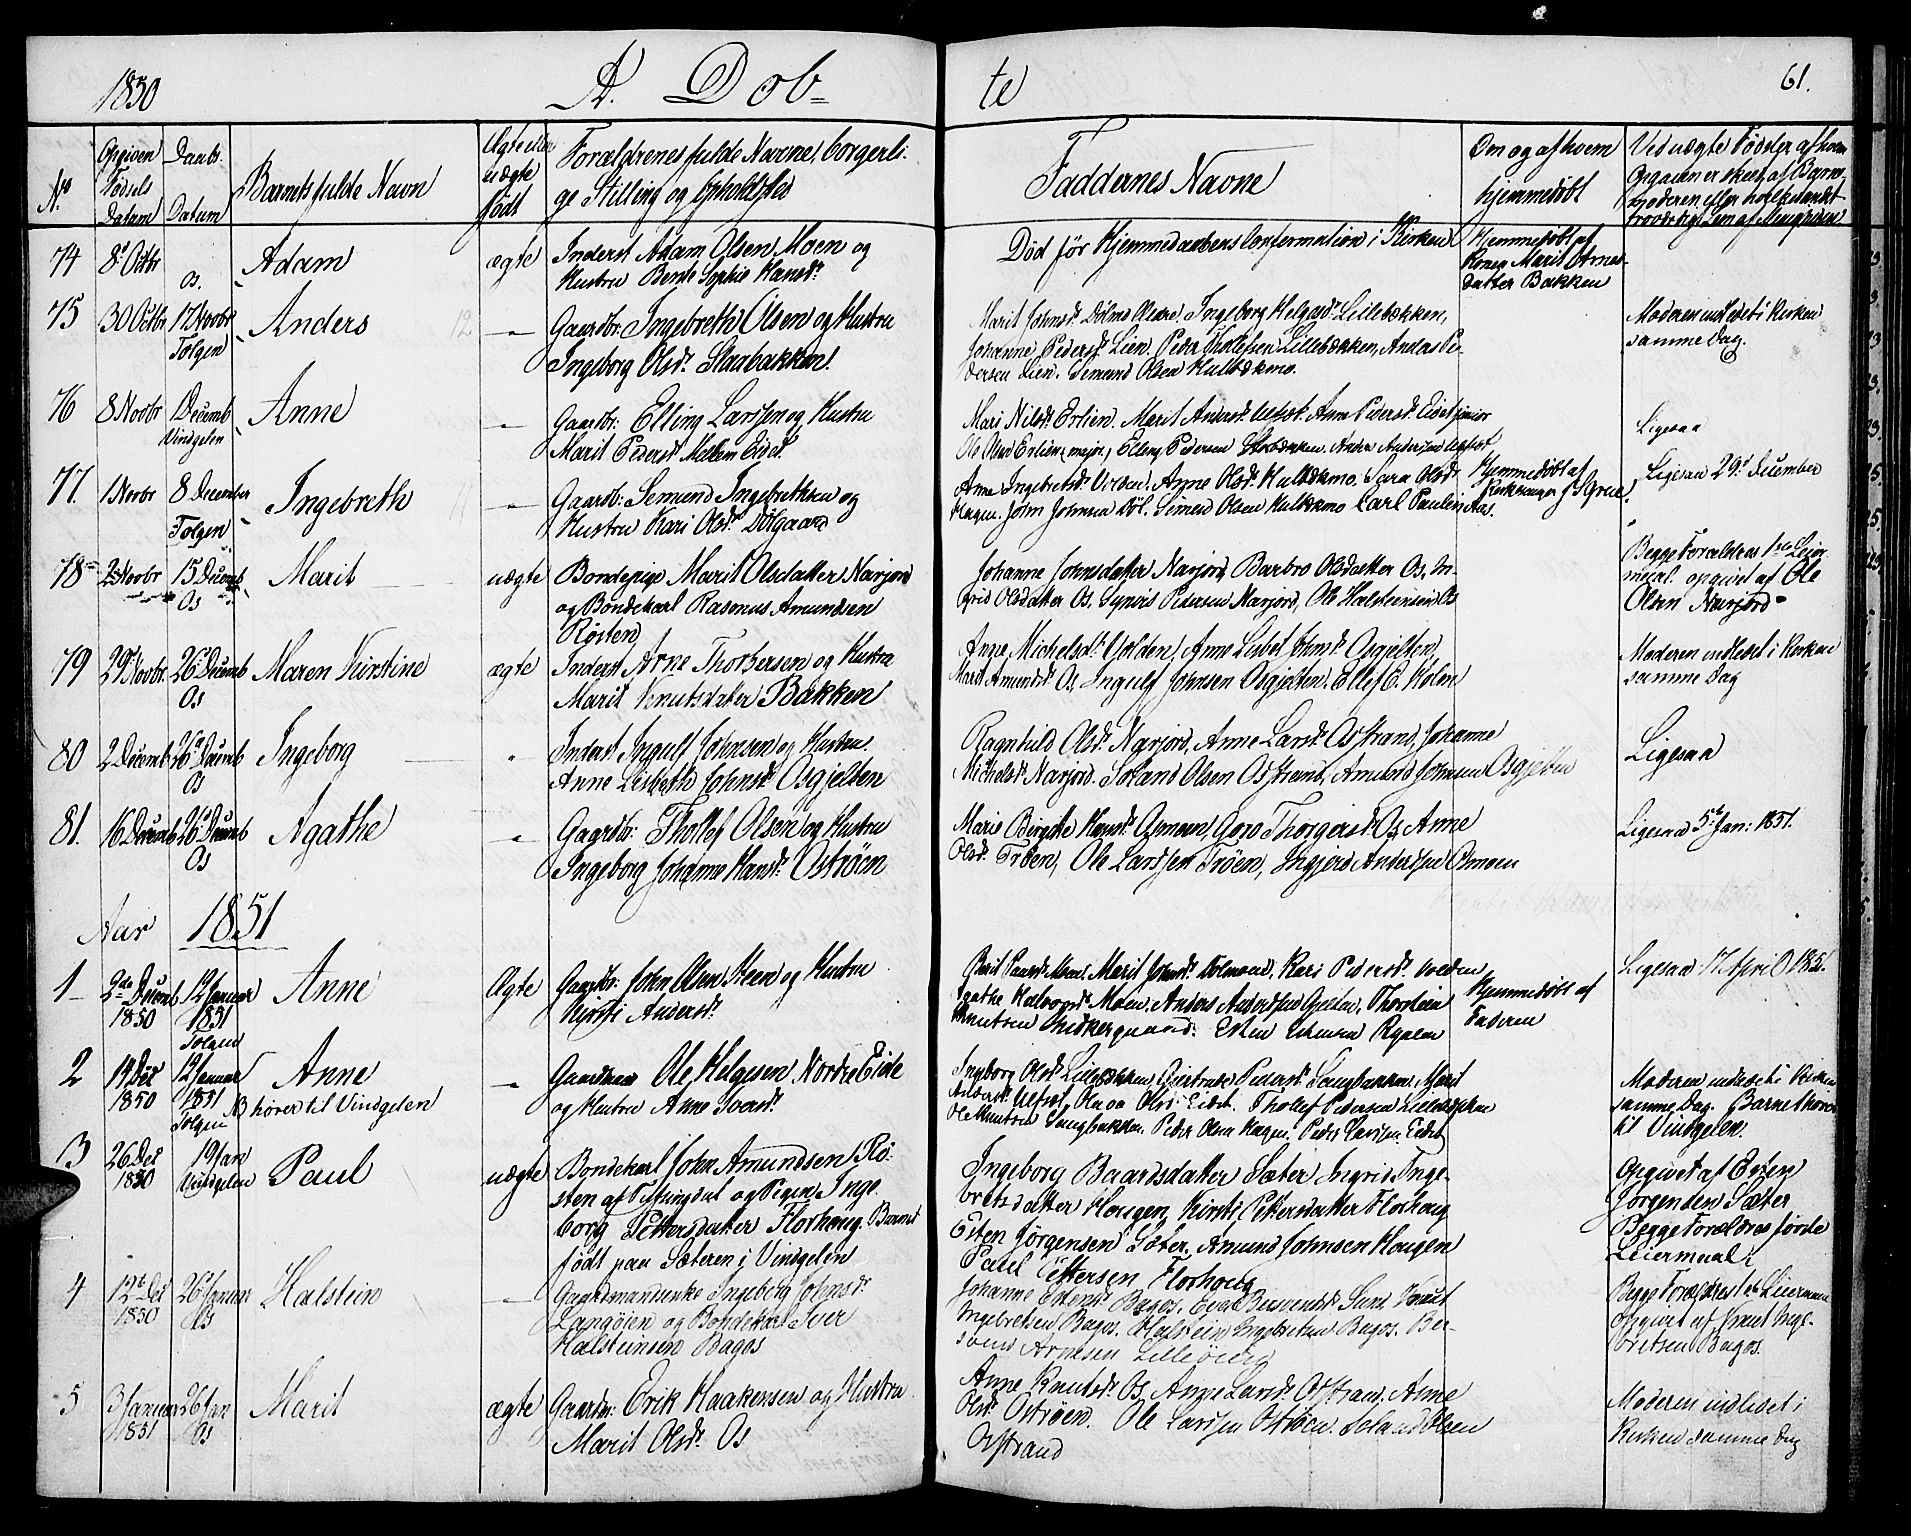 1850
A. Døb-
te
61.
No
Opgiven Fødsels Datum
Daabs- Datum
Barnets fulde Navn
Ægte eller uægte født
Forældrenes fulde Navne, borgerli-
ge Stilling og Opholdssted
Faddernes Navne
Om og af hvem
hjemmedøbt
Ved uægte Fødsler af hvem
Opgaven er skeet af Barne-
74 8de Octbr Os. Adam ægte Inderst Adam Olsen Moen og
Hustru Berte Sophie Hansdr.
Død før Hjemmedaabens Confermation i Kirken
Hjemmedøbt af
Konen Marit Arnes-
datter Bakken
75 30 Octbr 17 Novbr Tolgen Anders 12 — Gaardbr: Ingebreth Olsen og Hustru
Ingeborg Olsdr. Slaabakken.
Marit Johnsdr. Ingeborg Helgesdr. Lillebækken,
Johanne Pedersdr. Lien. Peder Thollefsen Lillebækken, Anders Pe-
dersen Lien. Semund Olsen Hulbækmo.
Moderen indledet i Kirken
samme Dag.
76 8 Novbr 1 Decemb Vindgelen Anne — Gaardbr: Elling Larssen og Hustru
Marit Pedersdr. Mellem Eidet.
Mari Nilsdr. Erlien. Marit Andersdr. Utstøt. Anne Pedersdr. Eidet junior
Ole Olsen Erlien, major, Elling Pedersen
Ligesaa
77. 1 Novbr 8 December Tolgen Ingebreth — Gaardbr: Semund Ingebrethsen og
Hustru Kari Olsdr. Dølgaard
Anne Ingebretsdr. Volden. Anne Olsdr. Hulbækmo. Sara Olsdr.
Hagen. John Johnsen Døl. Simen Olsen Hulbækmo Carl Paulsen Aas.
Hjemmedøbt af
Kirkesanger J. S. Grue.
Ligesaa 29de December
78 2 Novbr 15 Decemb Os Marit uægte Bondepige Marit Olsdatter Narjord
og Bondekarl Rasmus Amundsen
Røsten
Johanne Johnsdatter Narjord, Barbro Olsdatter Os, In-
grid Olsdatter Os. Syver Pedersen Narjord, Ole Halsteensen Os
Begge Forældres 1ste Leier-
maal. opgivet af Ole
Olsen Narjord
79 29 Novbr. 26 Decemb Os Maren Kirstine ægte Inderst Arne Thorbersen og Hustru
Marit Knutsdatter Bakken
Anne Michelsdr. Volden, Anne Lisbet Johnsdr. Osgjelten,
Marit Amundsdr. Os, Ingulf Johnsen Osgjelten. Ellef O. Holm
Moderen indledet i Kirken
samme Dag
80 2 Decemb 26 Decemb Os Ingeborg — Inderst Ingulf Johnsen og Hustru
Anne Lisbeth Johnsdr. Osgjelten
Ragnhild Olsdr. Narjord, Anne Larsdr. Osstrand, Johanne
Michelsdr. Narjord. Erland Olsen Osstrand, Amund Johnsen Osgjelten
Ligesaa
81. 16 Decemb 26 Decemb Os Agathe — Gaardbr: Thollef Olsen og Hustru
Ingeborg Johanne Hansdr. Ostrøen
Marie Birgitte Hansdr. Osmoen, Goro Thorgersdr. Os, Anne
Olsdr. Trøen, Ole Larssen Trøen, Ingjerd Anderssen Osmoen
Ligesaa 5te Jan: 1851.
Aar 1851
1 2den Decemb 1850 12 Januar 1851 Tolgen Anne Ægte Gaardbr: John Olsen Steen og Hustru
Kirsti Andersdr.
Marit Johnsdr. Dølmoen, Kari Pedersdr. Volden
Agathe Halvorsdr. Moen, Anders Anderssen Gjelten. Thorstein
Knutsen Esten Estensen Rydalen
Hjemmedøbt af
Faderen
Ligesaa 17 April 1851.
2 14 Dec 1850 12 Januar 1851 Tolgen Anne
NB hører til Vindgelen
— Gaardmand Ole Helgesen Nordre Eide
og Hustru Anne Iversdr.
Ingeborg Olsdr. Lillebækken, Gjertrud Pedersdr. Langbakken. Marit
Andersdr. Utstøt. Olava Olsdr. Eidet. Thollef Pedersen Lillebækken
Ole Knutsen Langbakken. Peder Olsen Hagen. Peder Larssen Eidet
Moderen indledet i Kirken
samme Dag. Barnet hører
til Vindgelen.
3 26 Dec 1850 19 Jan Vindgelen Paul uægte Bondekarl John Amundsen Rø-
sten af Tyldingdal og Pigen Inge-
borg Pettersdatter Florhaug. Barnet
født paa Sæteren i Vindgelen
Ingeborg Baardsdatter Sæter, Ingrid Inge-
bretsdatter Haugen, Kirsti Pettersdatter Florhaug
Esten Jørgensen Sæter, Amund Johnsen Haugen
Paul Pettersen Florhoug
Opgivet af Esten
Jørgensen Sæter
Begge Forældres første
Leiermaal.
4 12te Dec 1850 26 Januar Os Halstein — Gaardmandsenke Ingeborg Johnsdr.
Langøien og Bondekarl Iver
Halsteinsen Bagos
Johanne Estensdr. Bagos. Knut
Ingebretsen Bagos. Halstein Ingebretsen Bagos. Ber-
svend Arnesen Lilleøieng
Begge Forældres 1ste Leiermaal
opgivet af Knut Inge-
bretsen Bagos.
5 3 Januar 1851 26 Jan Os Marit ægte Gaardbr: Erik Haakensen og Hustru
Marit Olsdr. Os
Anne Knutsdr. Os, Anne Larsdr. Osstrand, Anne
Olsdr. Ostrøen. Ole Larssen Ostrøen. Erland Olsen
Osstrand
Moderen indledet i
Kirken samme Dag